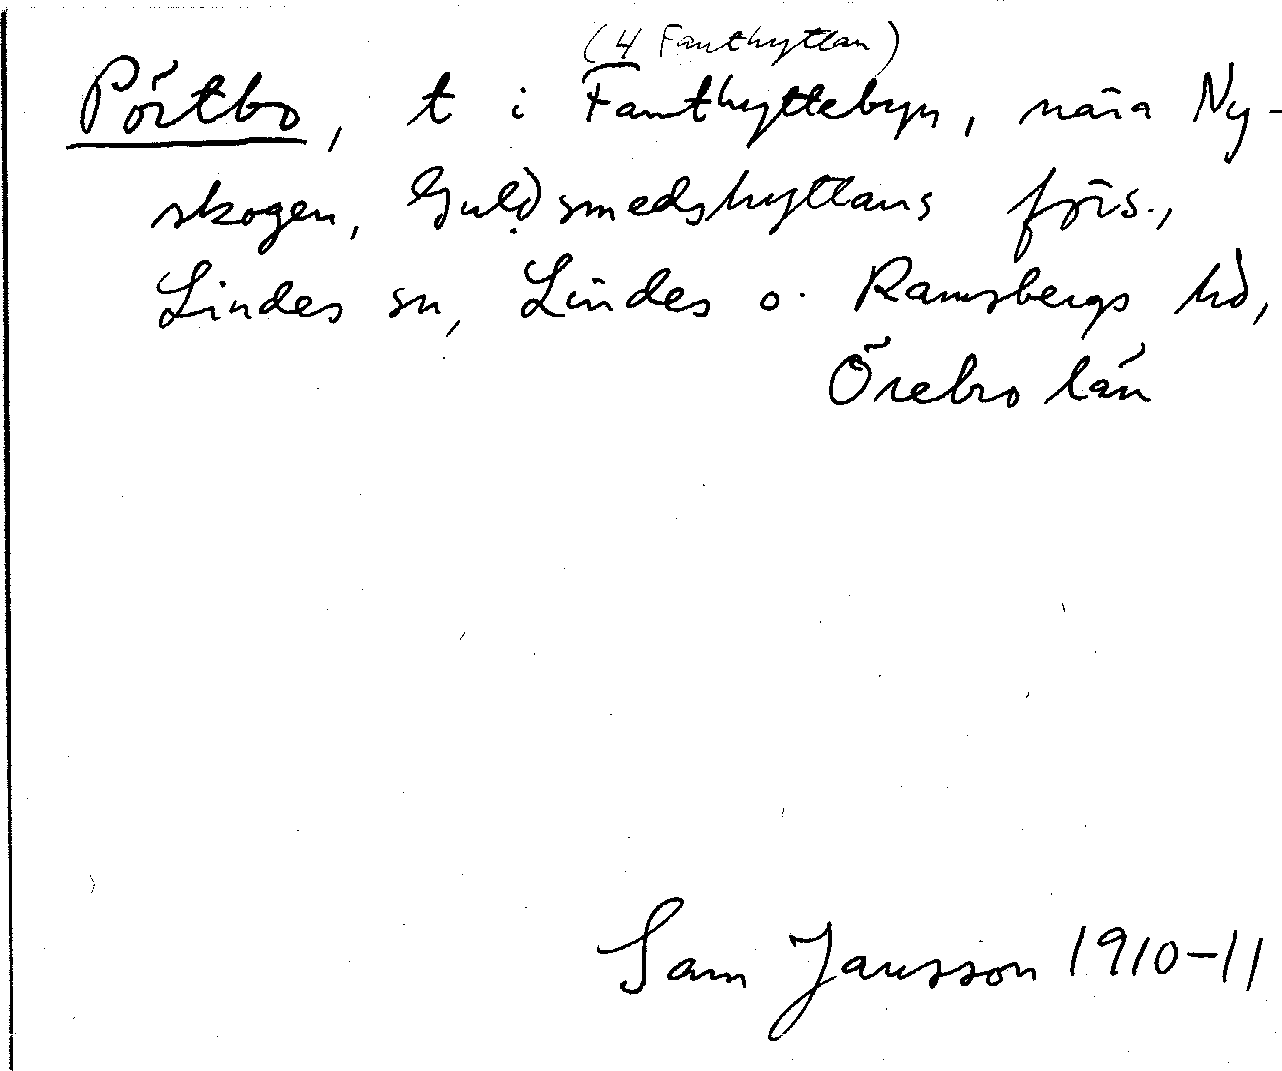 (4 Fanthyttan)
Pörtbo, t i Fanthyttebyn, nära Ny-
skogen, Guldsmedshyttans förs.,
Lindes sn, Lindes o. Ramsbergs hd,
Örebro län
Sam Jansson 1910-11